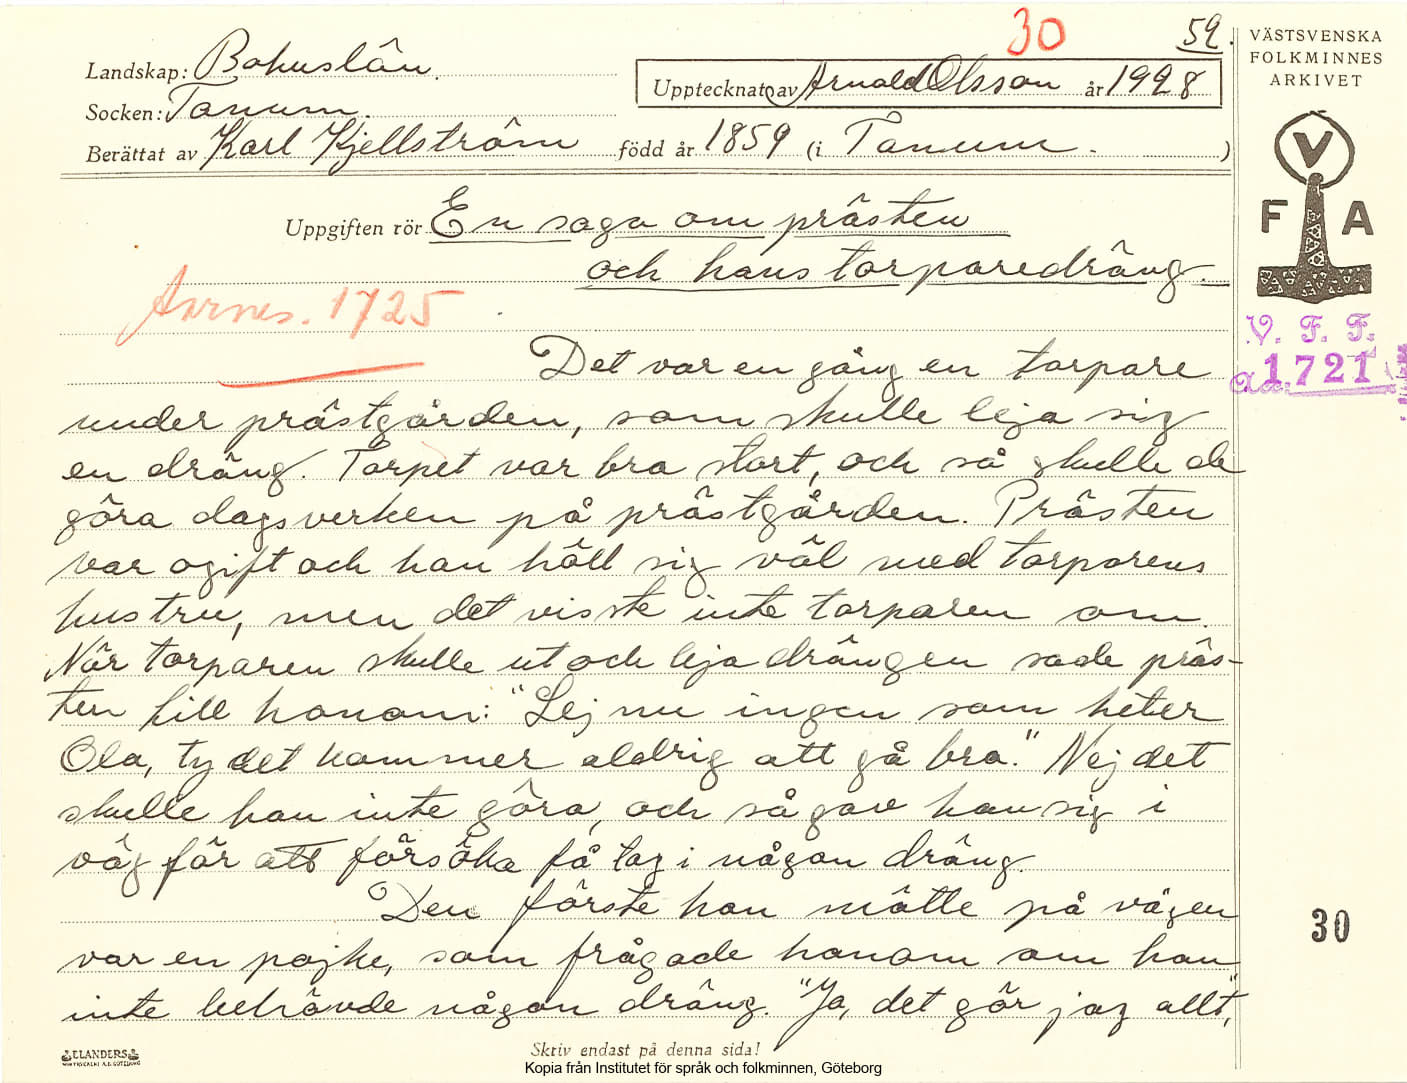 30
59.
Landskap: Bohuslän.
Upptecknat av Arnold Olsson år 1928
Socken: Tanum.
Berättat av Karl Kjellström född år 1859 (i Tanum. )
Uppgiften rör En saga om prästen
och hans torparedräng.
Aarnes. 1725
Det var en gång en torpare
under prästgården, som skulle leja sig
en dräng. Torpet var bra stort, och så skulle de
göra dagsverken på prästgården. Prästen
var ogift och han höll sig väl med torparens
hustru, men det visste inte torparen om.
När torparen skulle ut och leja drängen sade präs-
ten till honom: "Lej nu ingen som heter
Ola, ty det kommer aldrig att gå bra." Nej det
skulle han inte göra, och så gav han sig i
väg för att försöka få tag i någon dräng.
Den förste han mötte på vägen
var en pojke, som frågade honom om han
inte behövde någon dräng. "Ja, det gör jag allt",
Skriv endast på denna sida!
ELANDERS
GÖTEBORG
Kopia från Institutet för språk och folkminnen, Göteborg
VÄSTSVENSKA
FOLKMINNES
ARKIVET
V
F A
V. F. F.
Acc. 1721
30